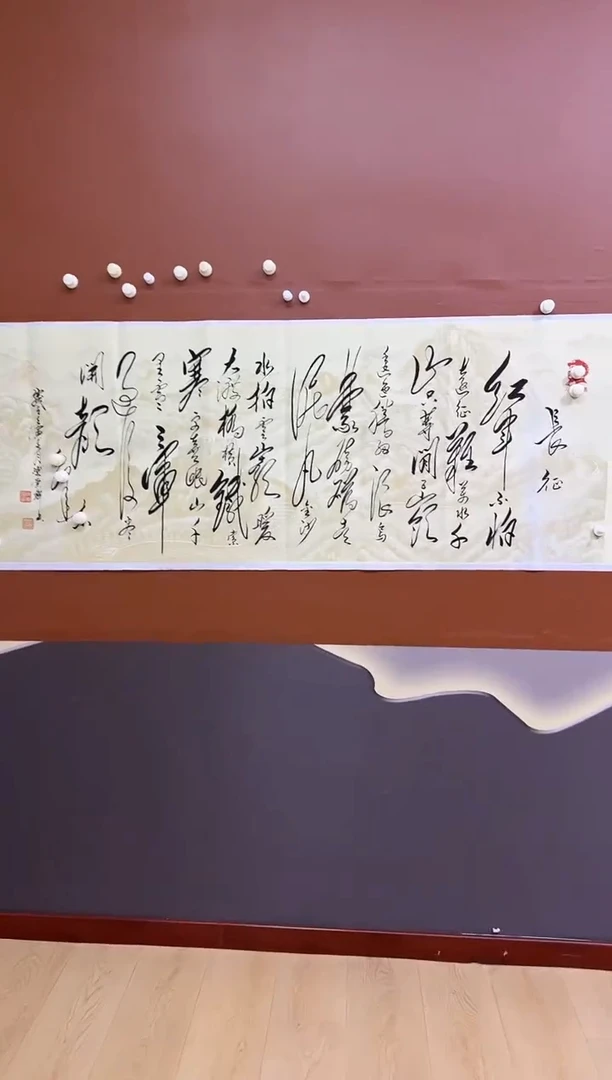 長征
紅軍不怕
遠征難萬水千
山只等閒五嶺
逶迤騰細浪烏
蒙磅礴走
泥丸金沙
水拍雲崖暖
大渡橋橫鐵索
寒更喜岷山千
里雪三軍
過後盡
開顏